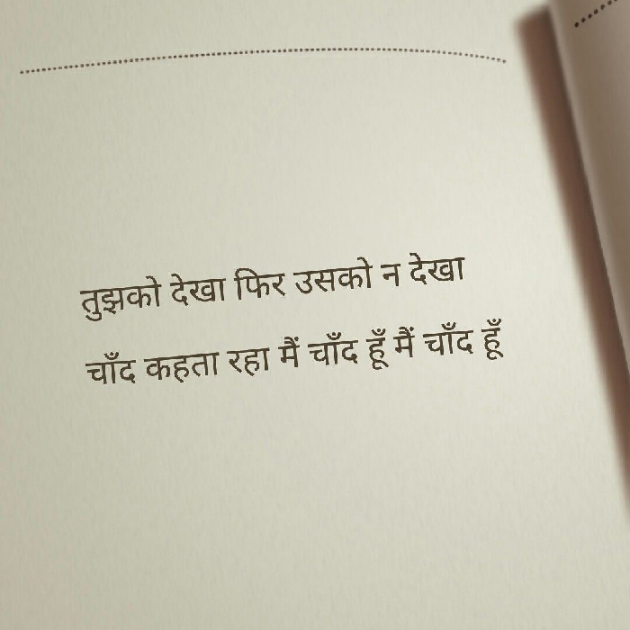 तुझको देखा फिर उसको न देखा
चाँद कहता रहा मैं चाँद हूँ मैं चाँद हूँ